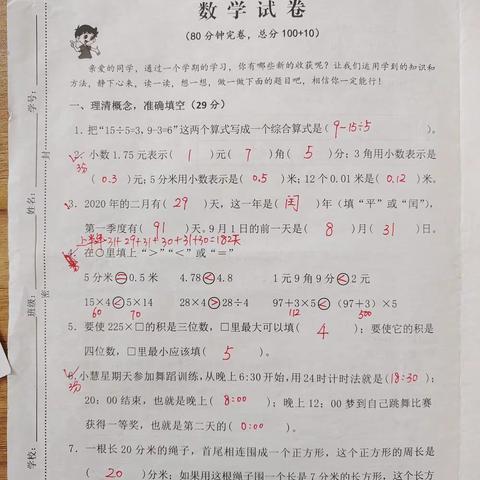 数学试卷
(80分钟完卷，总分100+10)
亲爱的同学，通过一个学期的学习，你有哪些新的收获呢？让我们运用学到的知识和
方法，静下心来，读一读，想一想，做一做下面的题目吧，相信你一定能行！
一、理清概念，准确填空(29分)
1. 把“15÷5=3，9-3=6”这两个算式写成一个综合算式是( 9-15÷5 )。
2. 小数1.75元表示( 1 )元( 7 )角( 5 )分；3角用小数表示是
3分
( 0.3 )元；5分米用小数表示是( 0.5 )米；12个0.01米是( 0.12 )米。
3. 2020年的二月有( 29 )天，这一年是( 闰 )年(填“平”或“闰”)，
第一季度有( 91 )天。9月1日的前一天是( 8 )月( 31 )日。
上半年 31+29+31+30+31+30=182天
4. 在○里填上“>”“<”或“=”
5分米=0.5米 4.78<4.8 1元9角9分<2元
15×4<5×14 28×4>28÷4 97+3×5<(97+3)×5
60 70 112 500
5. 要使225×□的积是三位数，□里最大可以填( 4 )；要使它的积是
四位数，□里最小应该填( 5 )。
6. 小慧星期天参加舞蹈训练，从晚上6:30开始，用24时计时法就是(18:30)；
3分
20：00结束，也就是晚上( 8:00 )；晚上12：00梦到自己跳舞比赛
获得一等奖，也就是第二天的( 0:00 )。
7. 一根长20分米的绳子，首尾相连围成一个正方形，这个正方形的周长是
( 20 )分米；如果用这根绳子围一个长是7分米的长方形，这个长方
学号：
姓名：
班级：
学校：
封
密